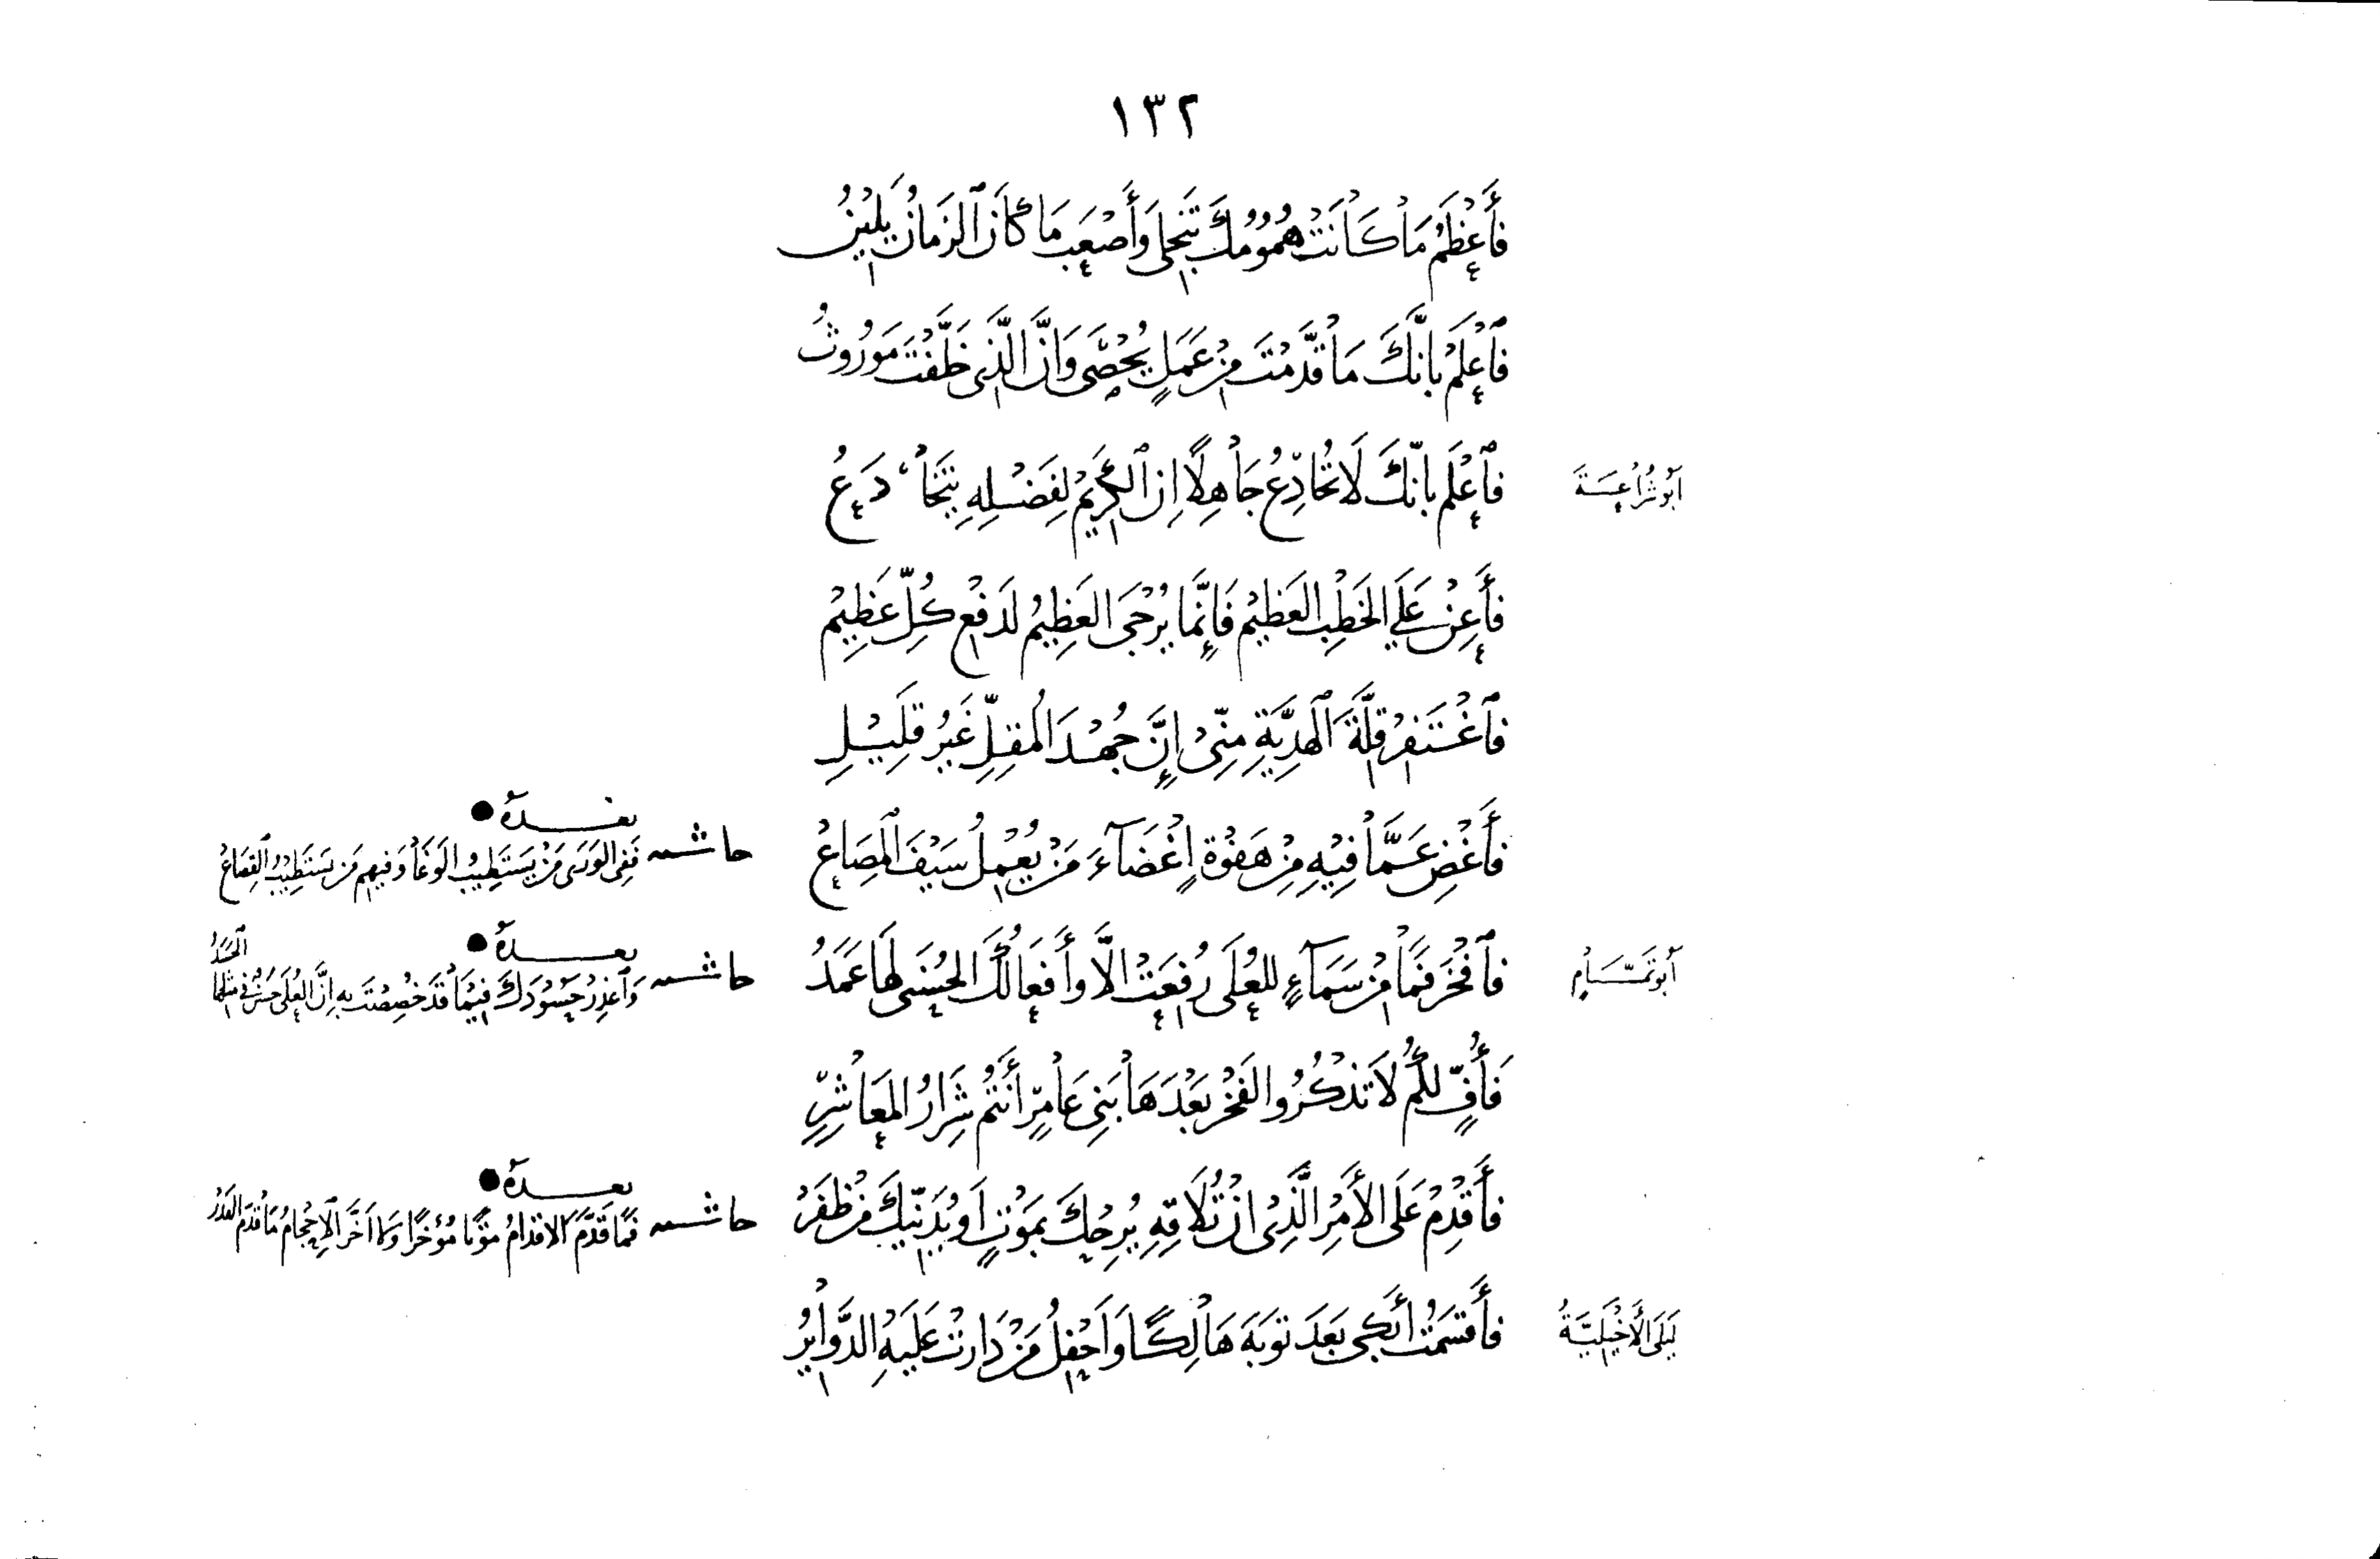 ١٣٢
فَأَعْظَمُ مَا كَانَتْ هُمُوُمُكَ تَنْجَلِي وَأَصْعَبُ مَا كَانَ الزَمَانُ يَلِيْنُ
فَاعْلَمْ بِانَّكَ مَا قَدَّمْتَ مِنْ عَمَلٍ يُحْصَى وَانَّ الَّذِي خَلَّفْتَ مَوْرُوثُ
أَبُو شُرَاعَةَ
فَاعْلَم بِانَّكَ لَا تُخَادِعُ جَاهِلًا اِنَ الكَرِيْمَ لِفَضْلِهِ يَتَخَادَعُ
فَأَعِنْ عَلَى الخَطْبِ العَظِيْمِ فَإِنَّمَا يُرْجَى العَظِيْمُ لَدَفْعِ كُلِّ عَظِيْمِ
فَاغْتَفِرْ قِلَّةَ الهَدِيَّةِ مِنِّىْ إِنَّ جُهْدَ المُقِلِّ غَيْرُ قَلِيْلِ
فَأَغْضِ عَمَّا فِيْهِ مِنْ هَفْوَةٍ إِغْضَآءَ مَنْ يُعْمِلُ سَيْفَ المِصَاعْ
حاشيه بعـدهُ ●
فَفِى الوَرَى مَنْ يَسْتَطِيْبُ الوَغَا وَفيهِم مَن يَسْتَطِيْبُ القِصَاعْ
أَبُو تَمَّامٍ
فَافْخَر فَمَا مِنْ سَمَآءٍ لِلعُلَى رُفِعَتْ الَّا وَأَفْعَالُكَ الحُسْنَى لَهَا عَمَدُ
حاشيه بعـدهُ ●
وَاعْذِرْ حَسُوْدَكَ فِيْمَا قَدْ خُصِصْتَ بِهِ اِنَّ العُلَى حَسَنٌ فِى مِثْلِهَا الحَسَدُ
فَأُفٍّ لَكُم لَا تَذْكُرُوا الفَخْرَ بَعْدَهَا بَنِي عَامِرٍ أَنتُم شِرَارُ المَعَاشِرِ
فَأَقْدِمْ عَلَى الأَمْرِ الَّذِىْ اِنْ تُلَاقِهِ يُرِحْكَ بِمَوْتٍ اَوْ يُدَنِّيْكَ مِنْ ظَفَرْ
حاشيه بعـدهُ ●
فَمَا قَدَّمَ الاقْدَامُ مَوْتًا مُؤَخَّرًا وَلَا اَخَّرَ الاِحْجَامُ مَا قَدَّمَ القَدَرْ
لَيْلَى الأَخْيَلِيَّةُ
فَأَقْسَمْتُ أَبْكِى بَعْدَ تَوبَةَ هَالِكًا وَاَحْفِلُ مَنْ دَارَتْ عَلَيْهِ الدَّوَايِرُ